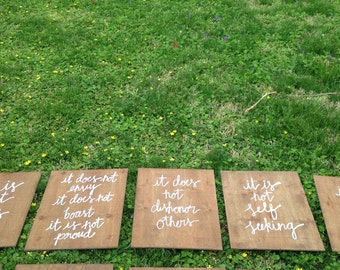 is
it does not
envy
it does not
boast
it is not
proud
it does
not
dishonor
others
it is
not
self
seeking